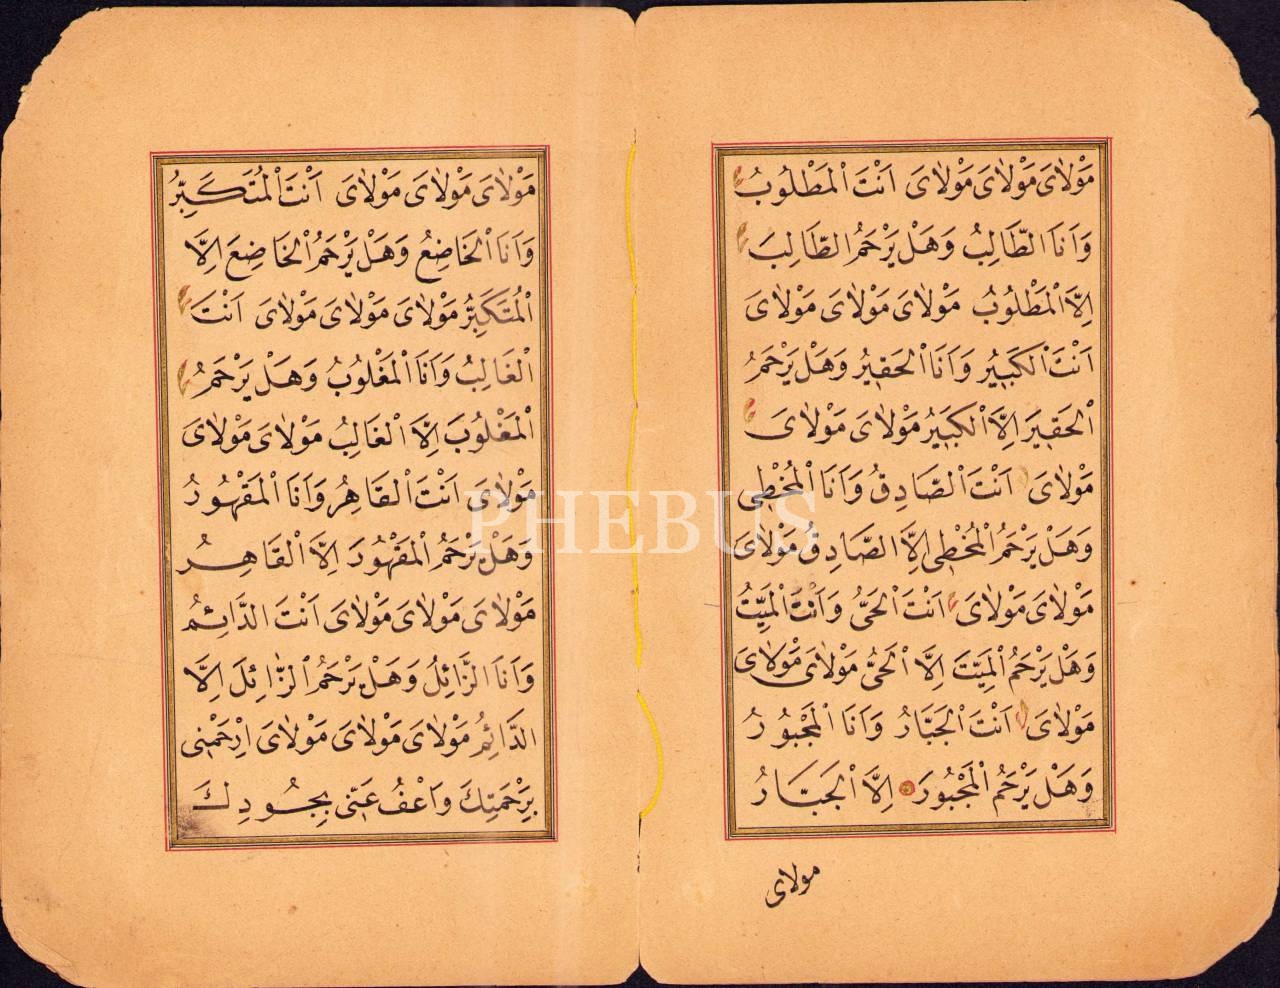 مَوْلَایَ مَوْلَایَ مَوْلَایَ اَنْتَ الْمَطْلُوبُ
وَاَنَا الطَّالِبُ وَهَلْ يَرْحَمُ الطَّالِبَ
اِلَّا الْمَطْلُوبُ مَوْلَایَ مَوْلَایَ مَوْلَایَ
اَنْتَ الْكَبِيْرُ وَاَنَا الْحَقِيْرُ وَهَلْ يَرْحَمُ
الْحَقِيرَ اِلَّا الْكَبِيْرُ مَوْلَایَ مَوْلَایَ
مَوْلَایَ اَنْتَ الصَّادِقُ وَاَنَا الْمُخْطِی
وَهَلْ يَرْحَمُ الْمُخْطِی اِلَّا الصَّادِقُ مَوْلَایَ
مَوْلَایَ مَوْلَایَ اَنْتَ الْحَیُّ وَاَنْتَ الْمَيِّتُ
وَهَلْ يَرْحَمُ الْمَيِّتَ اِلَّا الْحَیُّ مَوْلَایَ مَوْلَایَ
مَوْلَایَ اَنْتَ الْجَبَّارُ وَاَنَا الْمَجْبُورُ
وَهَلْ يَرْحَمُ الْمَجْبُورَ اِلَّا الْجَبَّارُ
مولای
مَوْلَایَ مَوْلَایَ مَوْلَایَ اَنْتَ الْمُتَكَبِّرُ
وَاَنَا الْخَاضِعُ وَهَلْ يَرْحَمُ الْخَاضِعَ اِلَّا
الْمُتَكَبِّرُ مَوْلَایَ مَوْلَایَ مَوْلَایَ اَنْتَ
الْغَالِبُ وَاَنَا الْمَغْلُوبُ وَهَلْ يَرْحَمُ
الْمَغْلُوبَ اِلَّا الْغَالِبُ مَوْلَایَ مَوْلَایَ
مَوْلَایَ اَنْتَ الْقَاهِرُ وَاَنَا الْمَقْهُورُ
وَهَلْ يَرْحَمُ الْمَقْهُورَ اِلَّا الْقَاهِرُ
مَوْلَایَ مَوْلَایَ مَوْلَایَ اَنْتَ الدَّائِمُ
وَاَنَا الزَّائِلُ وَهَلْ يَرْحَمُ الزَّائِلَ اِلَّا
الدَّائِمُ مَوْلَایَ مَوْلَایَ مَوْلَایَ اِرْحَمْنِی
بِرَحْمَتِكَ وَاعْفُ عَنِّی بِجُودِكَ
PHEBUS